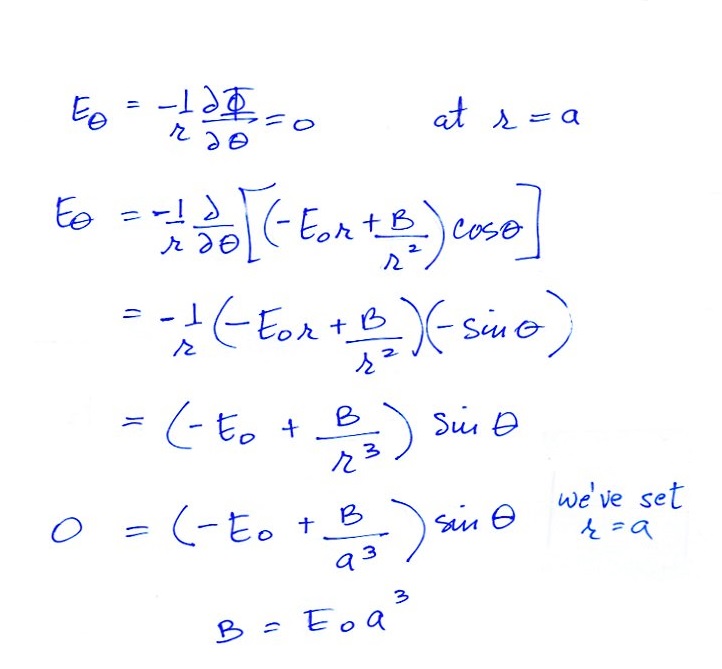 E_θ = -1/r ∂Φ/∂θ = 0 at r = a
E_θ = -1/r ∂/∂θ [(-E₀r + B/r²) cosθ]
= -1/r (-E₀r + B/r²)(-sinθ)
= (-E₀ + B/r³) sinθ
0 = (-E₀ + B/a³) sinθ we've set r = a
B = E₀a³